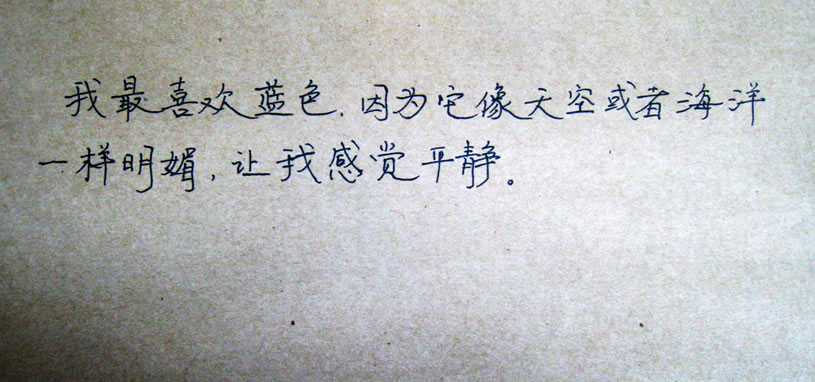 我最喜欢蓝色,因为它像天空或者海洋
一样明媚,让我感觉平静。